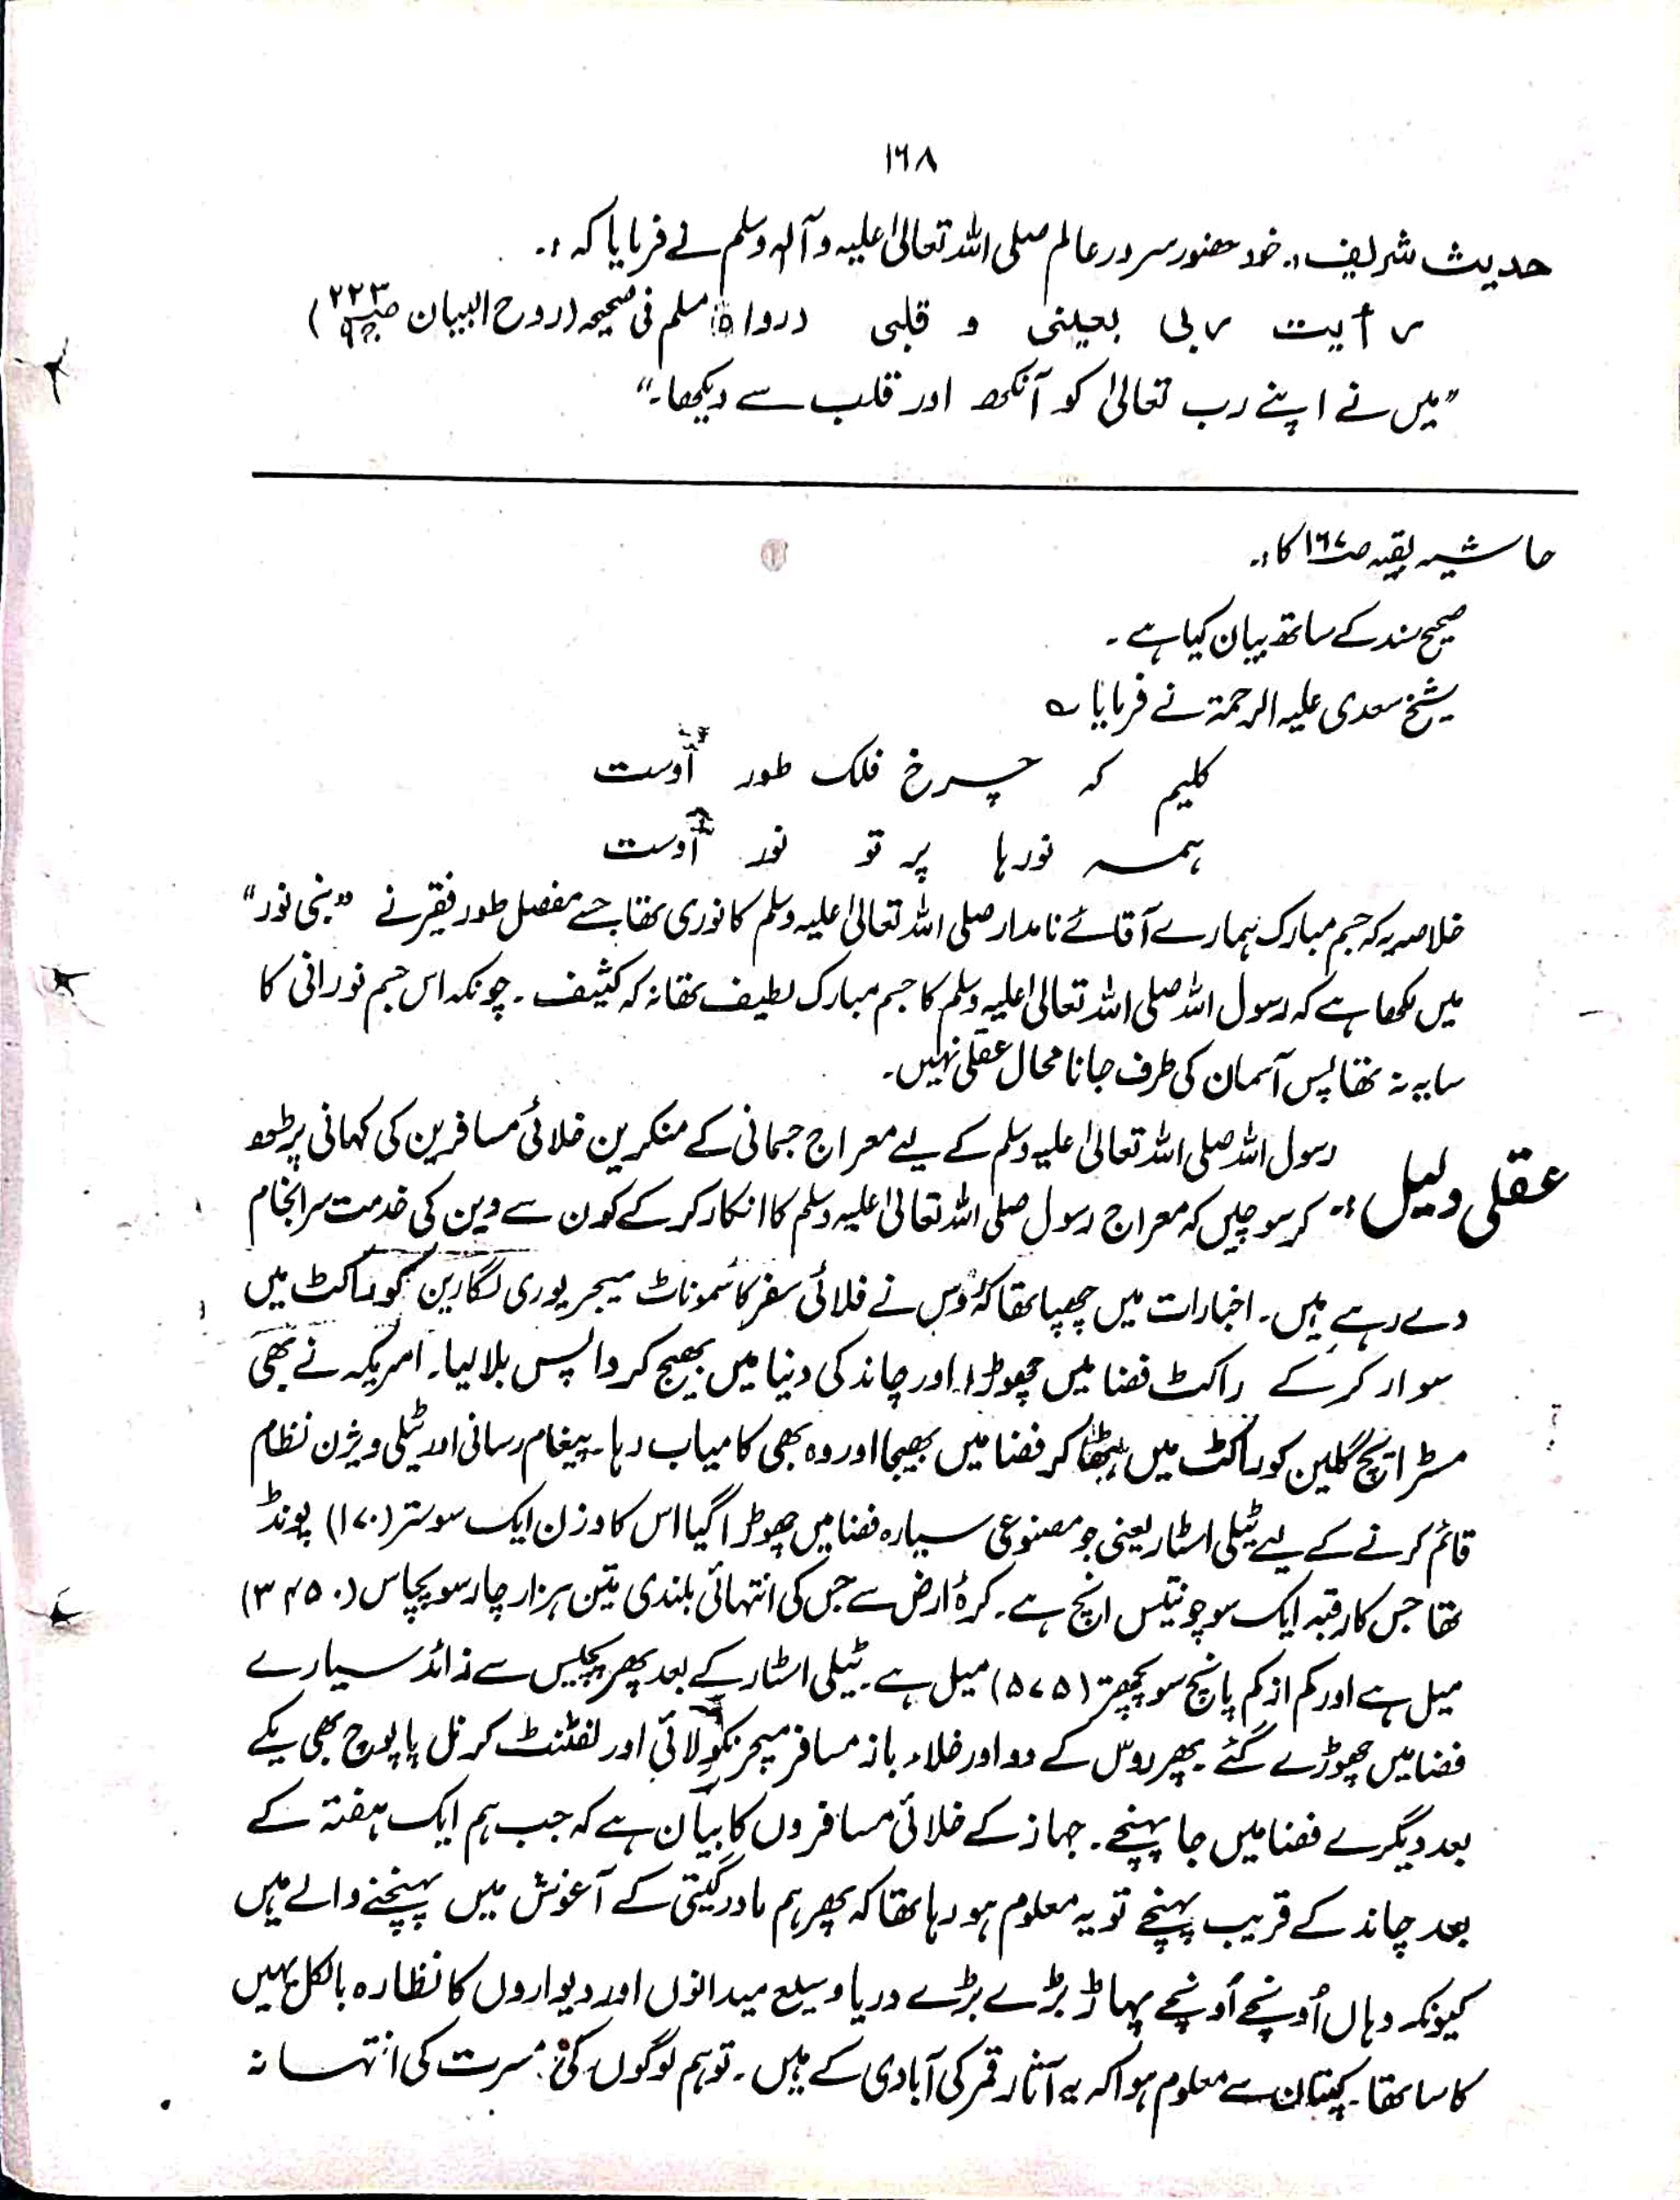 ۱۶۸
حدیث شریف:۔ خود حضور سرور عالم صلی اللہ تعالیٰ علیہ وآلہ وسلم نے فرمایا کہ:۔
رأیت ربی بعینی و قلبی (رواہ مسلم فی صحیحہ (روح البیان ص۲۲۳ ج۹)
"میں نے اپنے رب تعالیٰ کو آنکھ اور قلب سے دیکھا۔"
حاشیہ بقیہ ص۱۶۷ کا:۔
صحیح سند کے ساتھ بیان کیا ہے۔
شیخ سعدی علیہ الرحمۃ نے فرمایا ؎
کلیم کہ چرخ فلک طور اوست
ہمہ نورہا پر تو نور اوست
خلاصہ یہ کہ جسم مبارک ہمارے آقائے نامدار صلی اللہ تعالیٰ علیہ وسلم کا نوری تھا جسے مفصل طور فقیر نے "بنی نور"
میں لکھا ہے کہ رسول اللہ صلی اللہ تعالیٰ علیہ وسلم کا جسم مبارک لطیف تھا نہ کہ کثیف۔ چونکہ اس جسم نورانی کا
سایہ نہ تھا پس آسمان کی طرف جانا محال عقلی نہیں۔
عقلی دلیل:۔ رسول اللہ صلی اللہ تعالیٰ علیہ وسلم کے لیے معراج جسمانی کے منکرین خلائی مسافرین کی کہانی پڑھ
کر سوچیں کہ معراج رسول صلی اللہ تعالیٰ علیہ وسلم کا انکار کر کے کون سے دین کی خدمت سرانجام
دے رہے ہیں۔ اخبارات میں چھپا تھا کہ رُوس نے فلائی سفر کاسموناٹ میجر یوری گگارین کو راکٹ میں
سوار کر کے راکٹ فضا میں چھوڑا اور چاند کی دنیا میں بھیج کر واپس بلا لیا۔ امریکہ نے بھی
مسٹر ایچ گلین کو راکٹ میں بٹھا کر فضا میں بھیجا اور وہ بھی کامیاب رہا۔ پیغام رسانی اور ٹیلی ویژن نظام
قائم کرنے کے لیے ٹیلی اسٹار یعنی جو مصنوعی سیارہ فضا میں چھوڑا گیا اس کا وزن ایک سو ستر (۱۷۰) پونڈ
تھا جس کا رقبہ ایک سو چونتیس انچ ہے۔ کرۂ ارض سے جس کی انتہائی بلندی تین ہزار چار سو پچاس (۳۴۵۰)
میل ہے اور کم از کم پانچ سو پچھتر (۵۷۵) میل ہے۔ ٹیلی اسٹار کے بعد پھر پچیس سے زائد سیارے
فضا میں چھوڑے گئے۔ پھر روس کے دو اور خلاء باز مسافر میجر نکولائی اور لفٹنٹ کرنل پاپوچ بھی یکے
بعد دیگرے فضا میں جا پہنچے۔ جہاز کے خلائی مسافروں کا بیان ہے کہ جب ہم ایک ہفتہ کے
بعد چاند کے قریب پہنچے تو یہ معلوم ہو رہا تھا کہ پھر ہم مادر گیتی کے آغوش میں پہنچنے والے ہیں
کیونکہ وہاں اُونچے اُونچے پہاڑ بڑے بڑے دریا وسیع میدانوں اور دیواروں کا نظارہ بالکل یہیں
کا سا تھا۔ کپتان سے معلوم ہوا کہ یہ آثار قمر کی آبادی کے ہیں۔ تو ہم لوگوں کی مسرت کی انتہا نہ